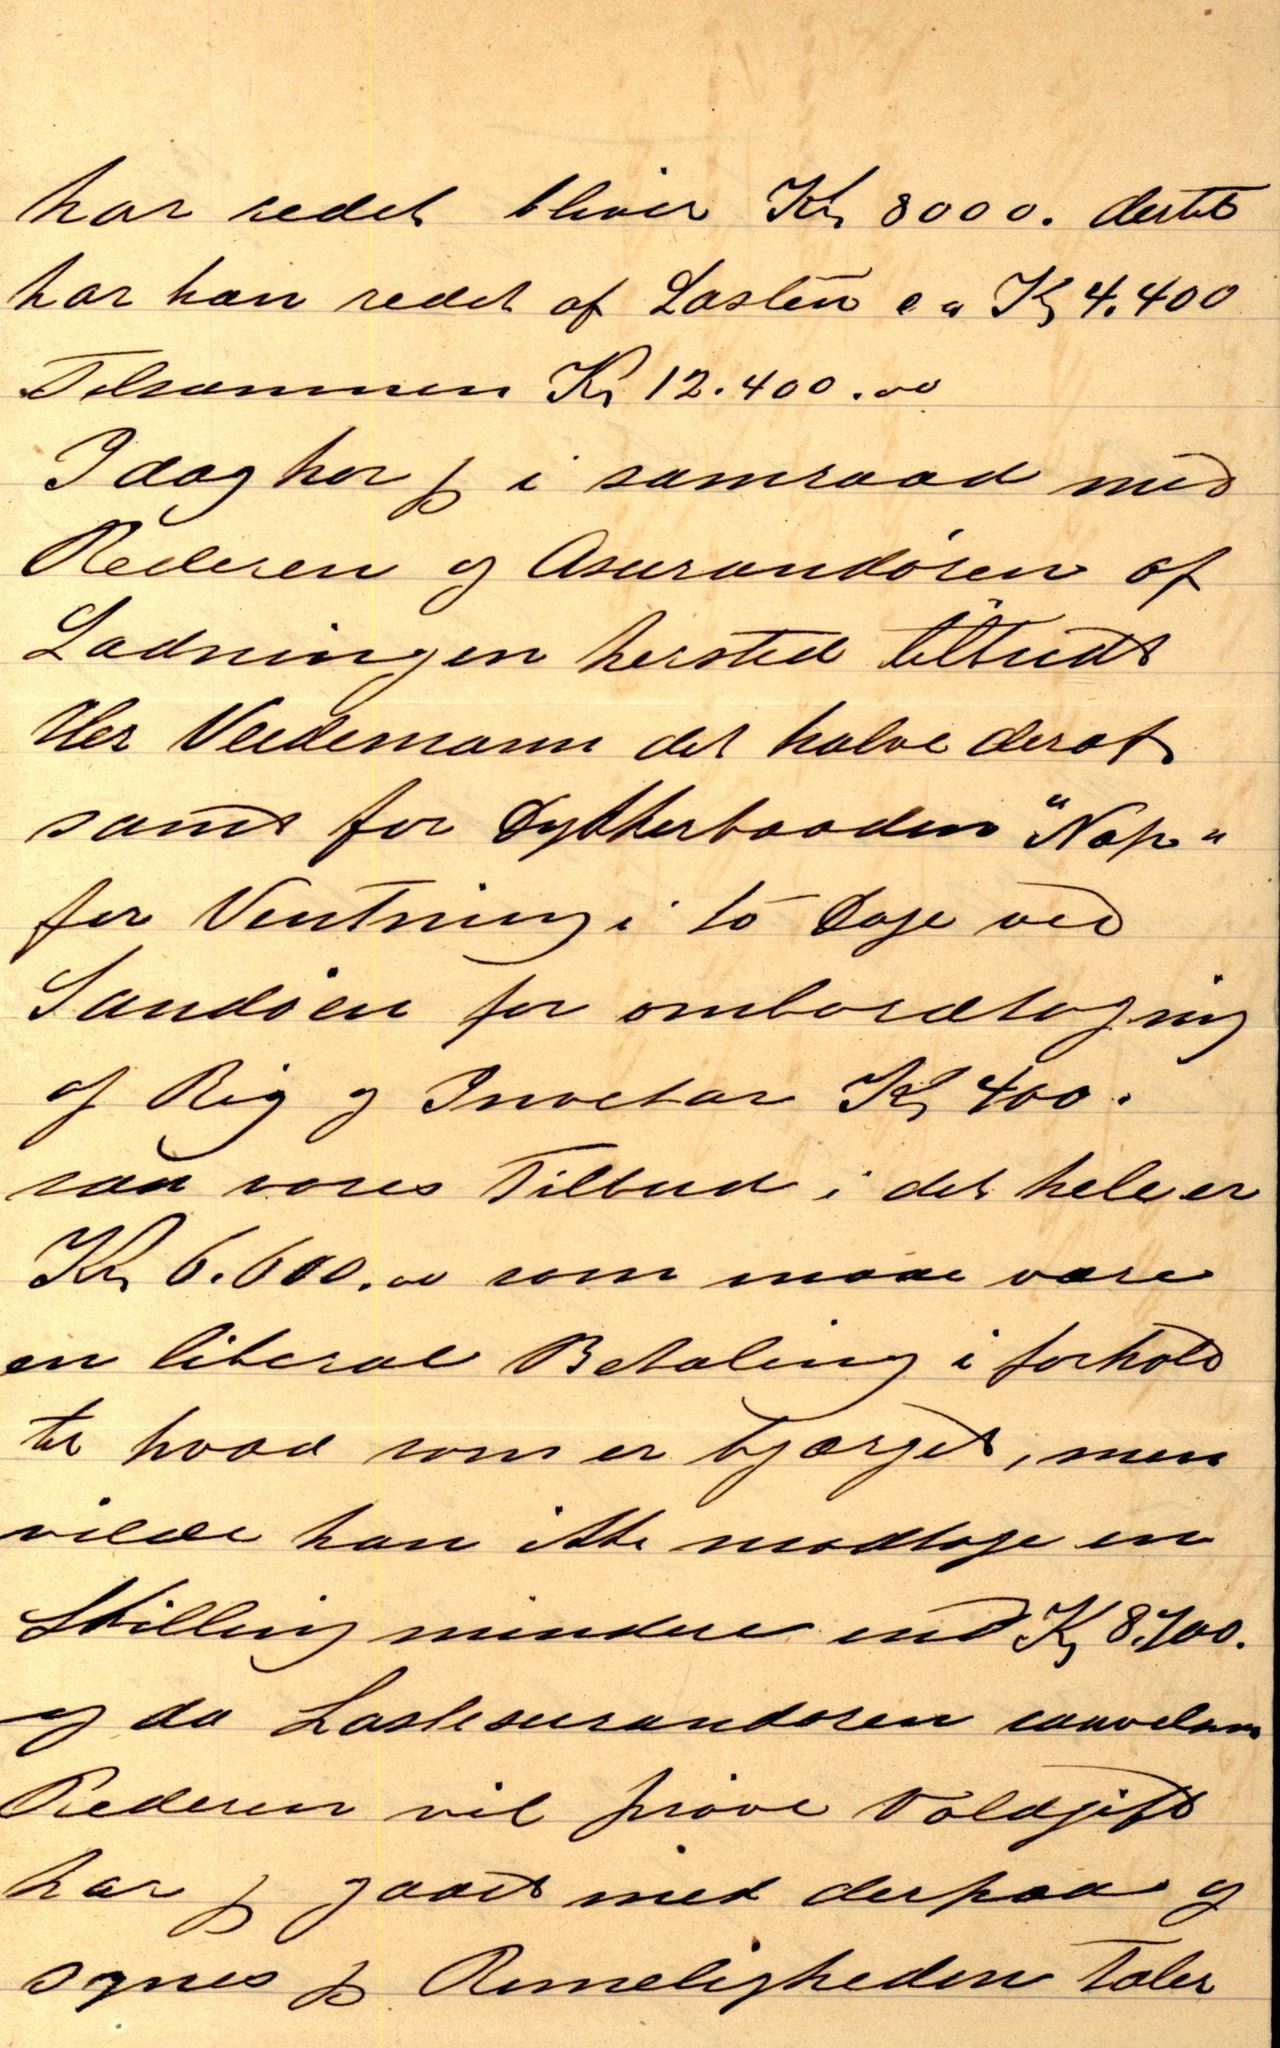 har redet bliver Kr 8000. dertil
har han redet af Lasten ca Kr 4.400
Tilsammen Kr 12.400.00
I dag har jg i samraad med
Rederen og Asurandøren af
Ladningen hersted tilbudt
Her Veedemann det halve deraf
samt for Dykkerbaaden "Nap"
for Ventning i to Dage ved
Sandøen for ombordtagning
af Rig og Invetar Kr 400.
saa vores Tilbud i det hele er
Kr 6.600.00 som maae være
en liberal Betaling i forhold
til hvad som er bjærget, men
vilde han ikke modtage en
Skilling mindre end Kr 8.700.
og da Lastesurandøren saavelsom
Rederen vil prøve Voldgift
har jg gaaet med derpaa og
synes jg Rimeligheden taler